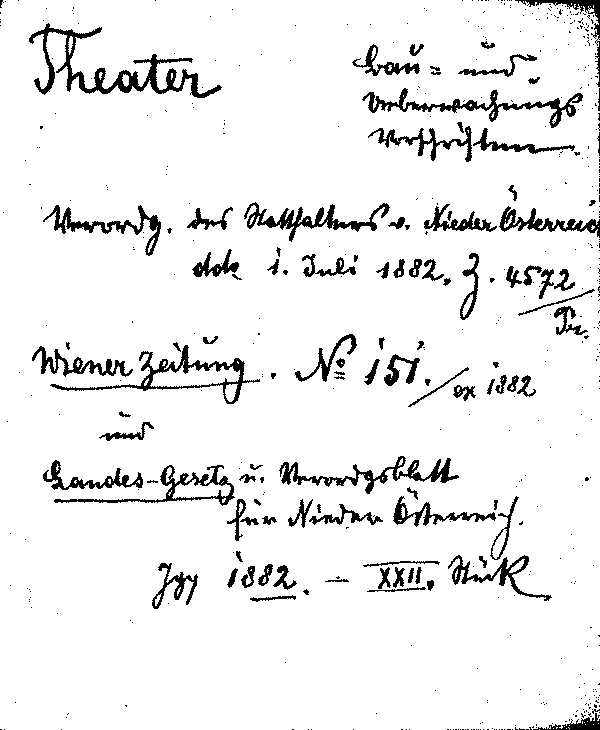 Theater
Bau= und
Ueberwachungs
Vorschriften
Verordg. des Statthalters v. Nieder Österreich
ddo 1. Juli 1882, Z. 4572/Pr.
Wiener Zeitung. No 151./ex 1882
und
Landes-Gesetz u. Verordgsblatt
für Nieder Österreich.
Jgg 1882. — XXII. Stück